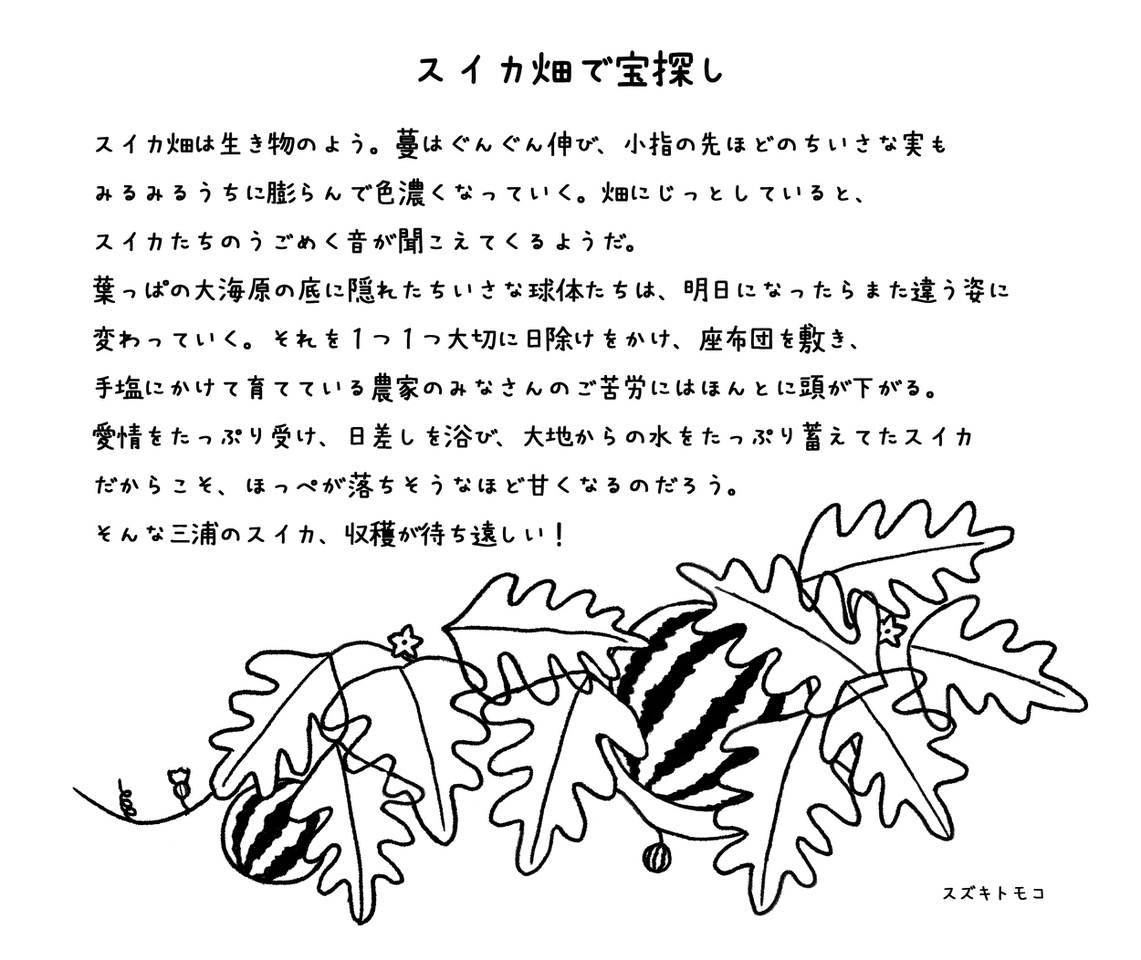 スイカ畑で宝探し
スイカ畑は生き物のよう。蔓はぐんぐん伸び、小指の先ほどのちいさな実も
みるみるうちに膨らんで色濃くなっていく。畑にじっとしていると、
スイカたちのうごめく音が聞こえてくるようだ。
葉っぱの大海原の底に隠れたちいさな球体たちは、明日になったらまた違う姿に
変わっていく。それを1つ1つ大切に日除けをかけ、座布団を敷き、
手塩にかけて育てている農家のみなさんのご苦労にはほんとに頭が下がる。
愛情をたっぷり受け、日差しを浴び、大地からの水をたっぷり蓄えてたスイカ
だからこそ、ほっぺが落ちそうなほど甘くなるのだろう。
そんな三浦のスイカ、収穫が待ち遠しい！
スズキトモコ